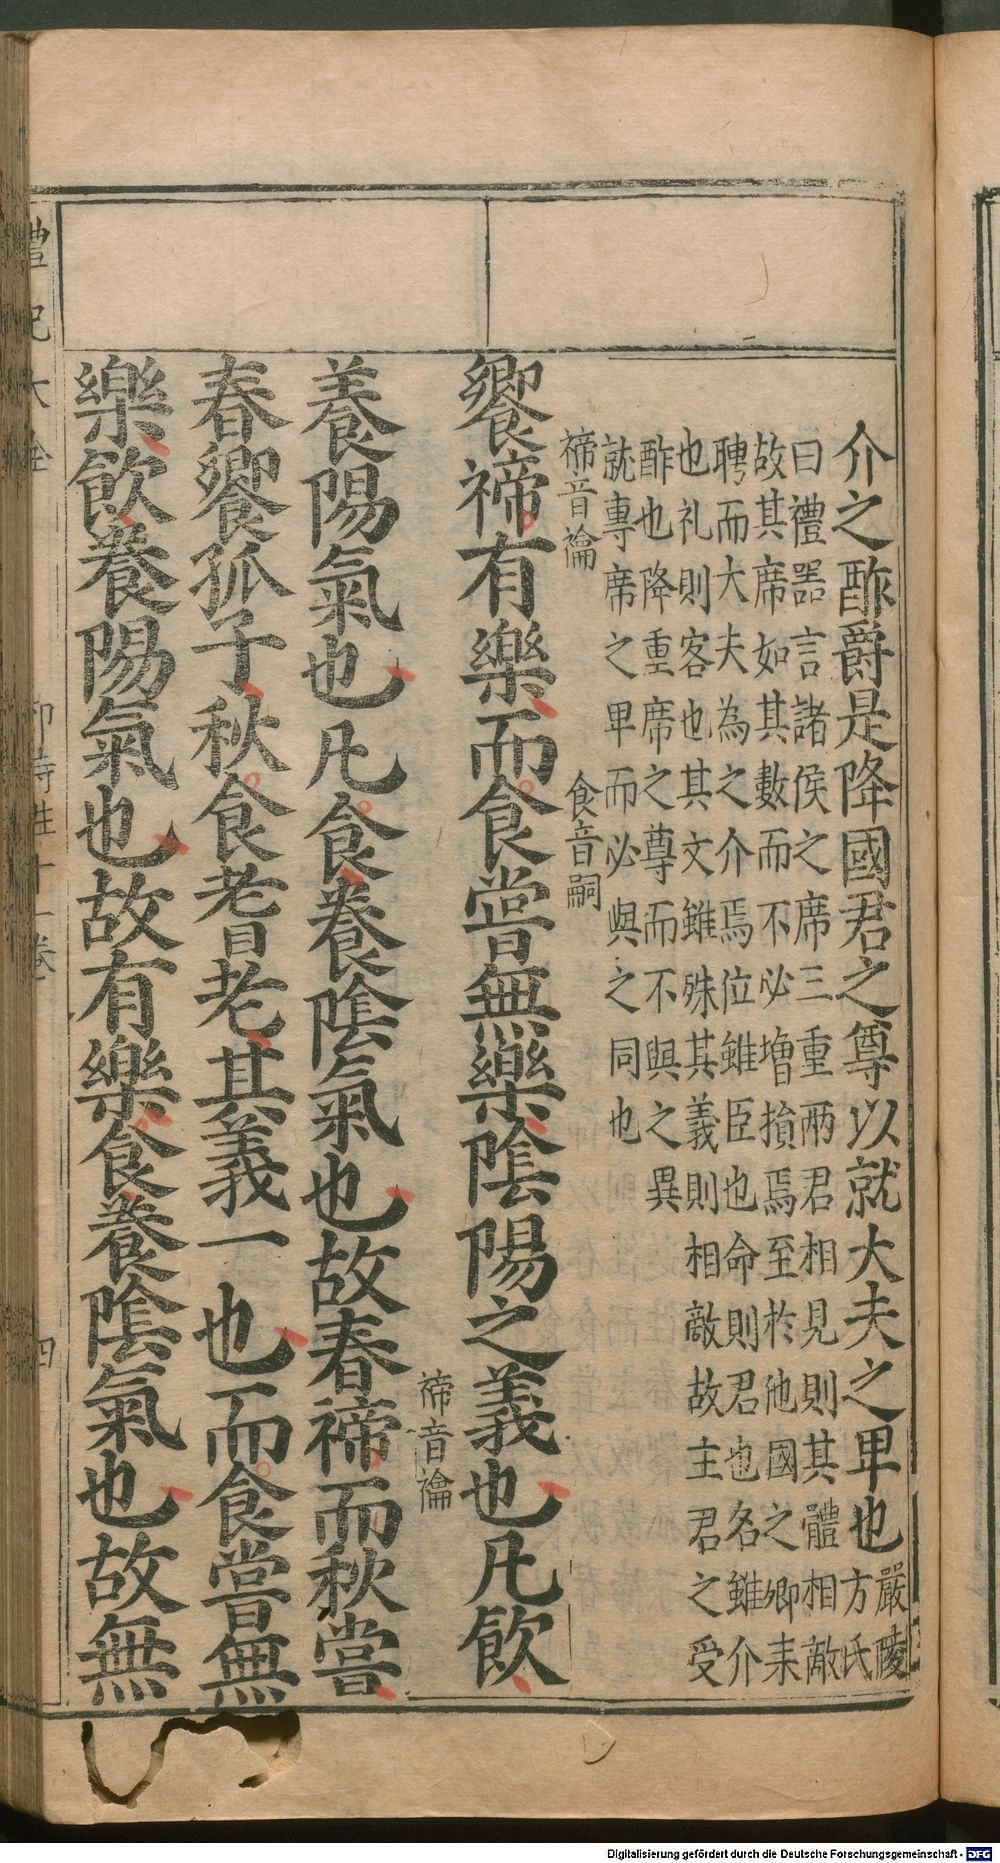 介之酢爵是降國君之尊以就大夫之卑也嚴陵
方氏
曰禮噐言諸侯之席三重两君相見則其體相敵
故其席如其數而不必增損焉至於他國之卿来
聘而大夫為之介焉位雖臣也命則君也名雖介
也礼則客也其文雖殊其義則相敵故主君之受
酢也降重席之尊而不與之異
就專席之卑而必與之同也
禘音禴 食音嗣
饗禘有樂而食嘗無樂陰陽之義也凡飲
禘音禴
養陽氣也凡食養陰氣也故春禘而秋嘗
春饗孤子秋食耆老其義一也而食嘗無
樂飲養陽氣也故有樂食養陰氣也故無
禮記大全 郊特牲十一卷 四
Digitalisierung gefördert durch die Deutsche Forschungsgemeinschaft - DFG